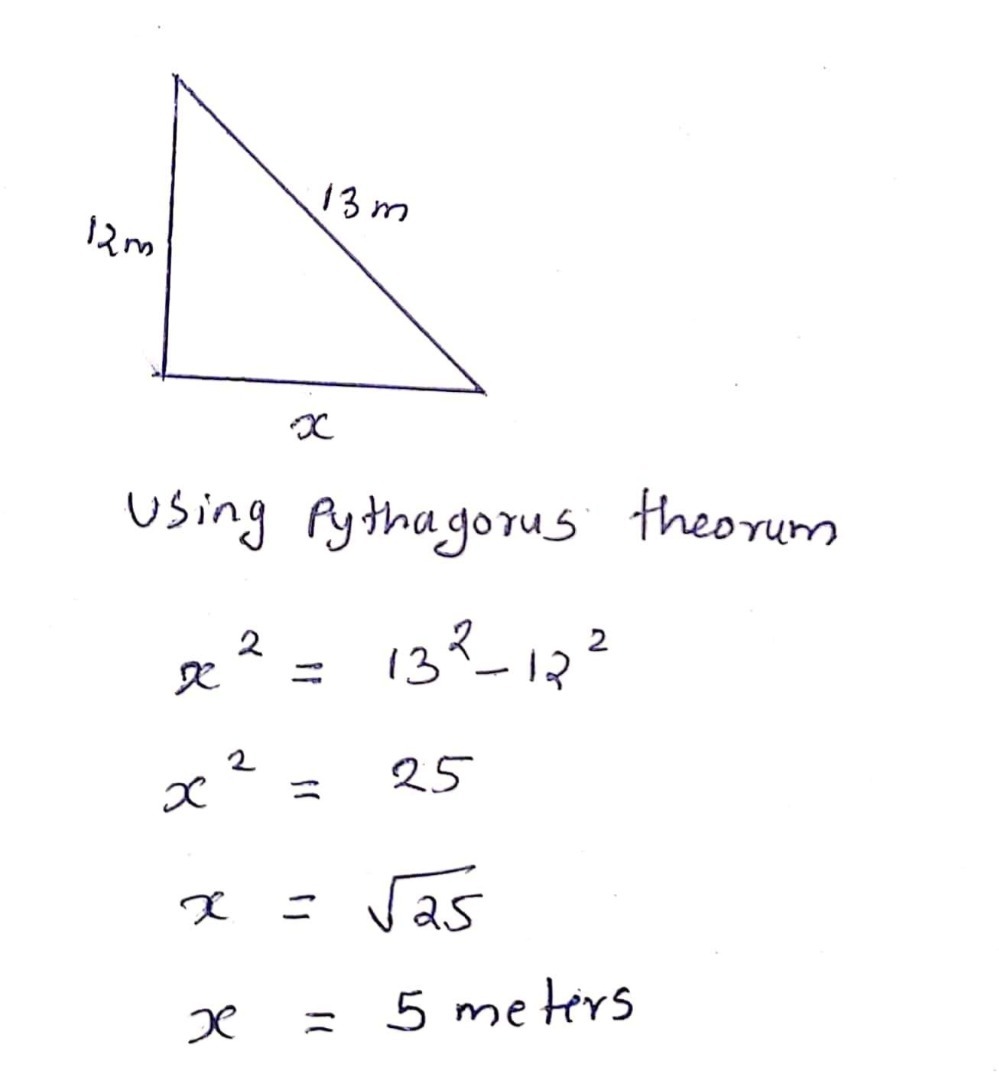 13 m
12m
x
Using Pythagorus theorum
x² = 13² - 12²
x² = 25
x = √25
x = 5 meters